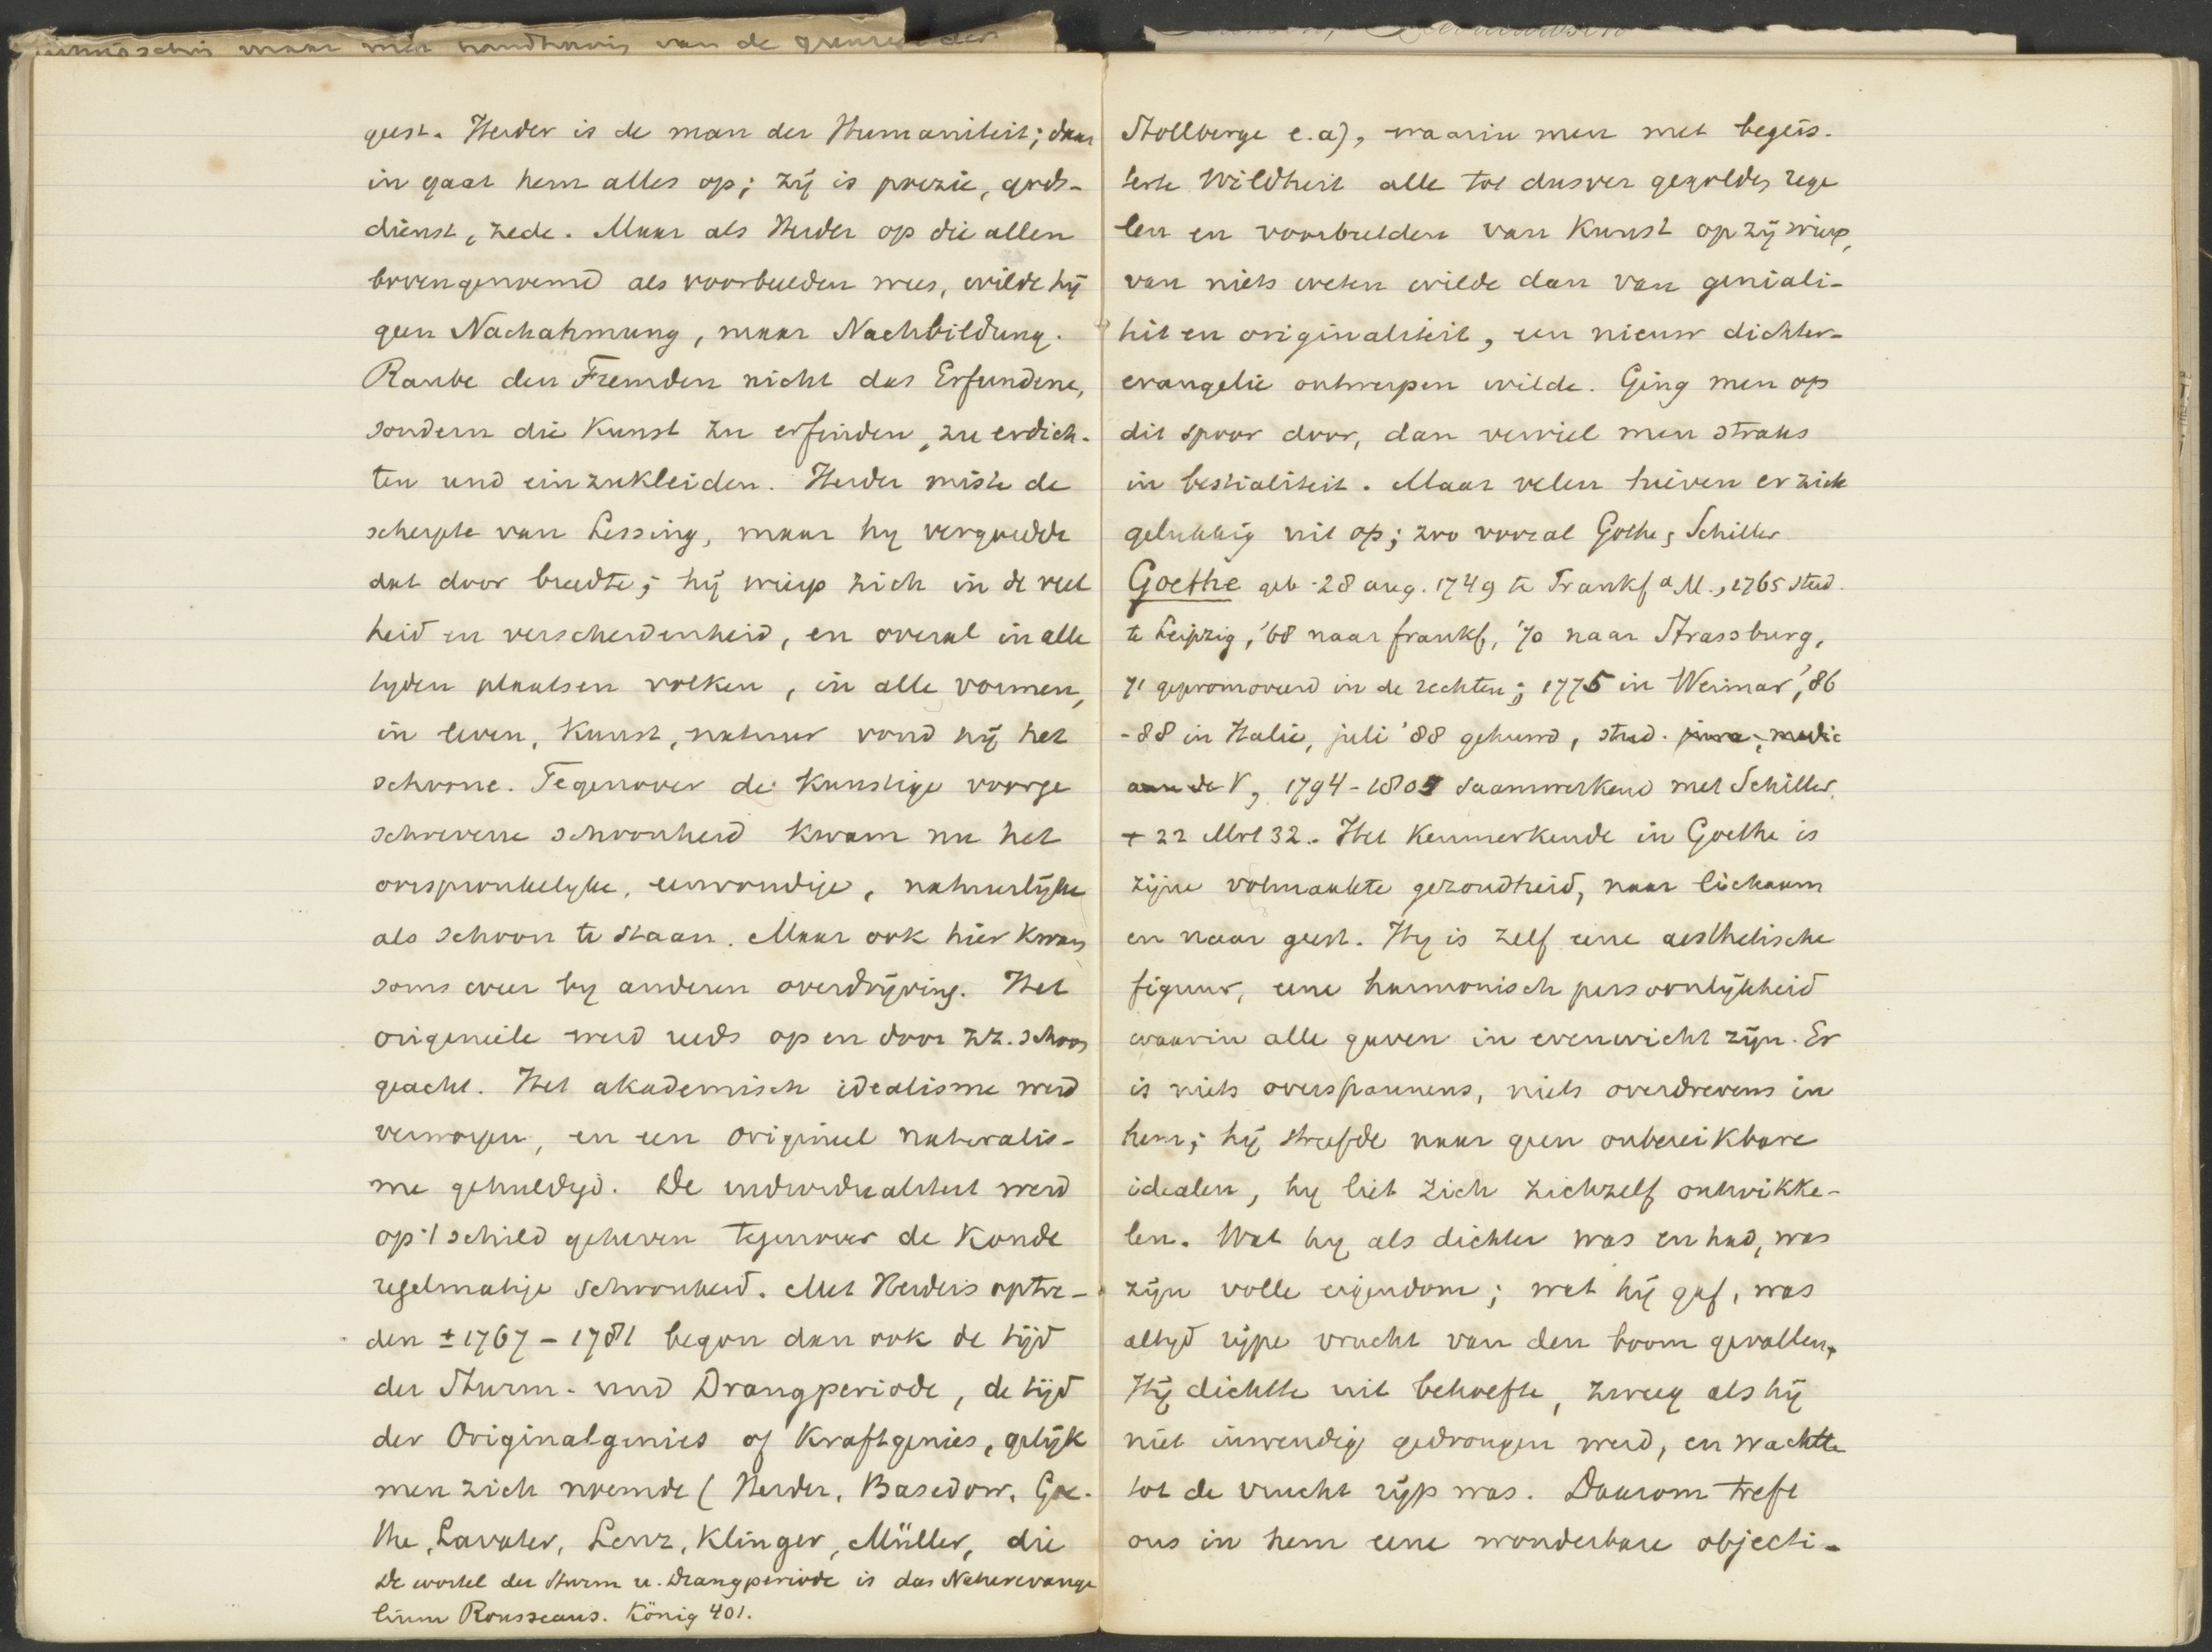 maar van de
geest. Herder is de man der Humaniteit; daar
in gaat hem alles op; zij is poezie, gods-
dienst, zede. Maar als Herder op die allen
bovengenoemd als voorbeelden wees, wilde hij
geen Nachahmung, maar Nachbildung.
Raube den Fremden nicht das Erfundene,
sondern die Kunst zu erfinden, zu erdich-
ten und einzukleiden. Herder miste de
scherpte van Lessing, maar hy vergoedde
dat door breedte; hij wierp zich in de veel
heid en verscheidenheid, en overal in alle
tyden plaatsen volken, in alle vormen,
in leven, Kunst, natuur vond hij het
schoone. Tegenover de kunstige voorge
schrevene schoonheid kwam nu het
oorspronkelyke, eenvoudige, natuurlijke
als schoon te staan. Maar ook hier kwam
soms weer by anderen overdrijving. Het
origineele werd reeds op en door zz. schoon
geacht. Het akademisch idealisme werd
verworpen, en een origineel naturalis-
me gehuldigd. De individualiteit werd
op 't schild geheven tegenover de koude
regelmatige schoonheid. Met Herders optre-
den ± 1767 - 1781 begon dan ook de tijd
der Sturm- und Drangperiode, de tijd
der Originalgenies of Kraftgenies, gelijk
men zich noemde (Herder, Basedow, Goe-
the, Lavater, Lenz, Klinger, Müller, die
De wortel der Sturm u. Drangperiode is das Naturevange
lium Rousseaus. König 401.
Stollberge e.a), waarin men met begeis-
terte Wildheit alle tot dusver gegolden rege
len en voorbeelden van Kunst op zij wierp,
van niets weten wilde dan van geniali-
teit en originaliteit, een nieuw dichter-
evangelie ontwerpen wilde. Ging men op
dit spoor door, dan verviel men straks
in bestialiteit. Maar velen hieven er zich
gelukkig uit op; zoo vooral Göthe, Schiller
Goethe geb. 28 aug. 1749 te Frankf a M., 1765 stud.
te Leipzig, '68 naar frankf, '70 naar Strassburg,
71 gepromoveerd in de rechten; 1775 in Weimar, '86
-88 in Italie, juli '88 gehuwd, stud. jura, medic
aan de V, 1794 - 1805 saamwerkend met Schiller.
+ 22 Mrt 32. Het Kenmerkende in Goethe is
zijne volmaakte gezondheid, naar lichaam
en naar geest. Hy is zelf eene aesthetische
figuur, eene harmonisch persoonlijkheid
waarin alle gaven in evenwicht zijn. Er
is niets overspannens, niets overdrevens in
hem; hij streefde naar geen onbereikbare
idealen, hy liet zich zichzelf ontwikke-
len. Wat hy als dichter was en had, was
zijn volle eigendom; wat hij gaf, was
altyd rijpe vrucht van den boom gevallen.
Hij dichtte uit behoefte, zweeg als hij
niet inwendig gedrongen werd, en wachtte
tot de vrucht rijp was. Daarom treft
ons in hem eene wonderbare objecti-